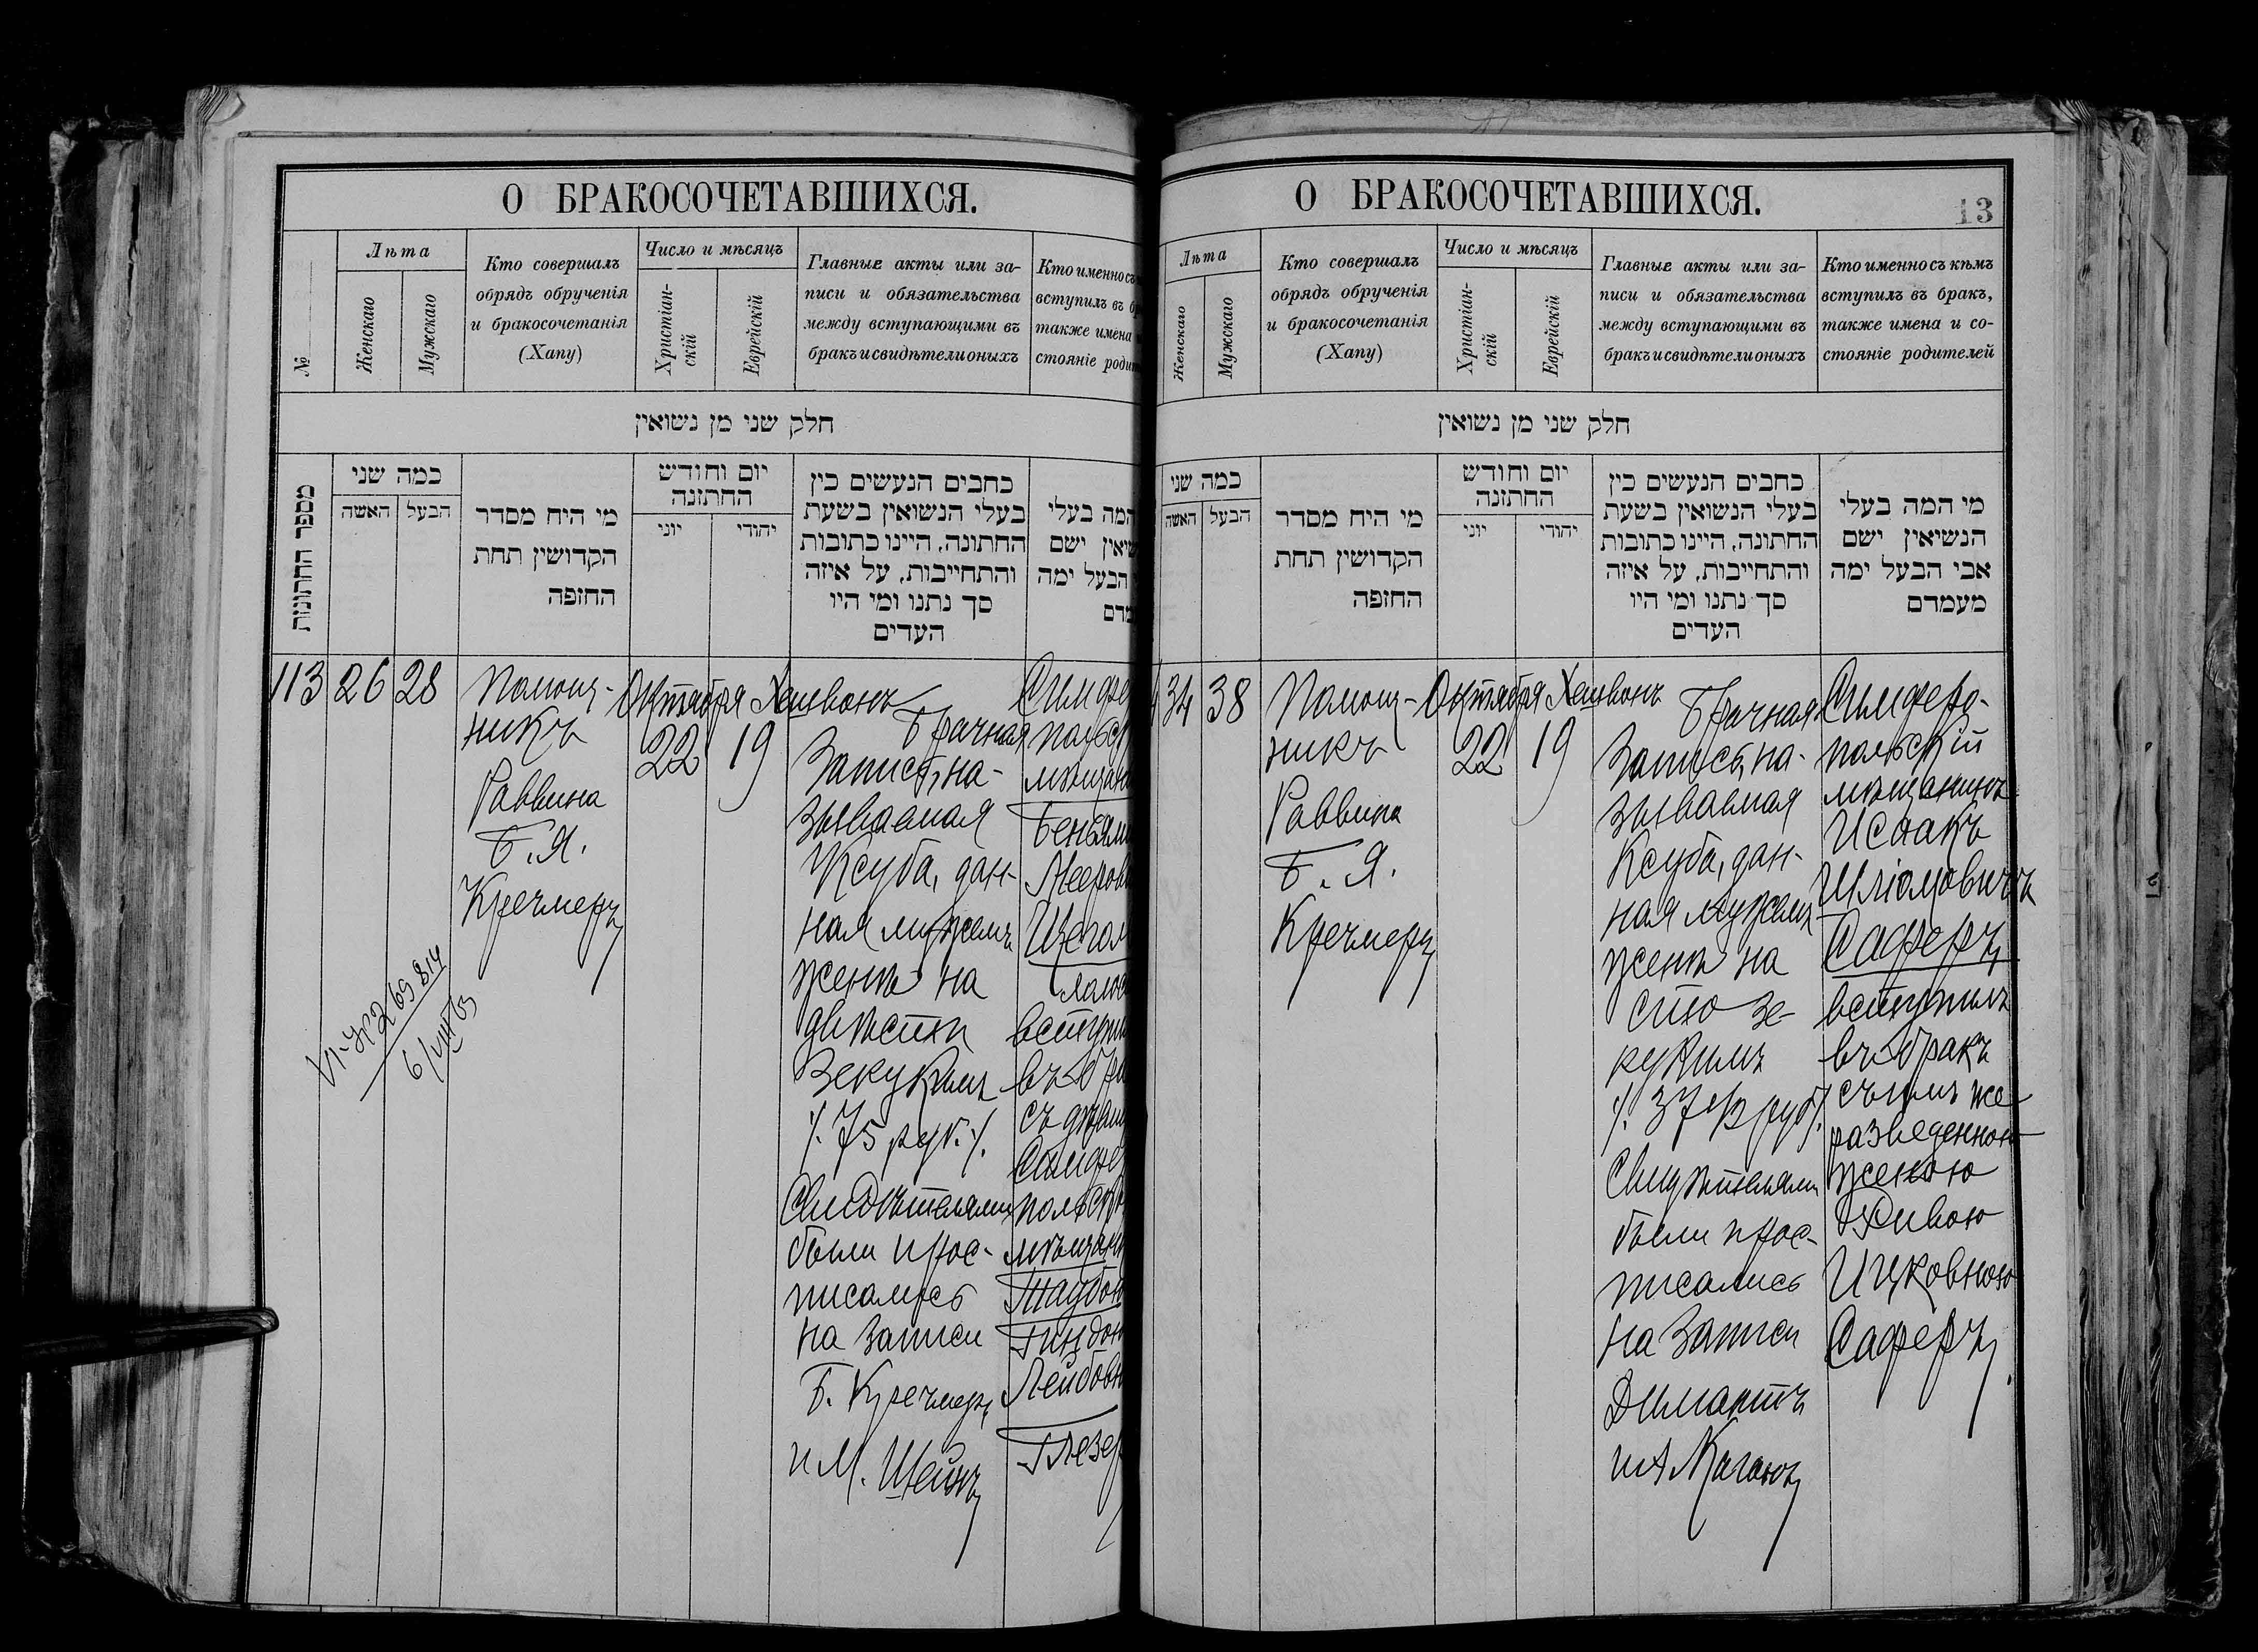 О БРАКОСОЧЕТАВШИХСЯ.
№
Лѣта
Женскаго
Мужскаго
Кто совершалъ
обрядъ обрученія
и бракосочетанія
(Хапу)
Число и мѣсяцъ
Христіан-
скій
Еврейскій
Главные акты или за-
писи и обязательства
между вступающими въ
бракъ и свидѣтели оныхъ
Кто именно съ
вступилъ въ
также имена
стояніе
חלק שני מן נשואין
מספר החתונות
כמה שני
האשה
הבעל
מי היח מסדר
הקדושין תחת
החופה
יום וחודש
החתונה
יוני
יהודי
כחבים הנעשים כין
בעלי הנשואין בשעת
החתונה, היינו כתובות
והתחייבות, על איזה
סך נתנו ומי היו
העדים
המה בעלי
ישם
הבעל ימה
113
26
28
Помощ-
никъ
Раввина
Б. Я.
Кречмеръ
Октября
22
Хешвонъ
19
Брачная
запись, на-
зываемая
Ксуба, дан-
ная мужемъ
женѣ на
двѣсти
Зекукимъ
/. 75 руб. /.
Свидѣтелями
были и рос-
писались
на записи
Б. Кречмеръ
и М. Штейнъ
Симфе
польск
мѣщан
Беньями
Мееров
вступи
въ бр
съ
Симфе
польско
мѣщан
Таубою
Гиндою
Лейбовн
Глезер
6/VIII 63
О БРАКОСОЧЕТАВШИХСЯ.
13
Лѣта
Женскаго
Мужскаго
Кто совершалъ
обрядъ обрученія
и бракосочетанія
(Хапу)
Число и мѣсяцъ
Христіан-
скій
Еврейскій
Главные акты или за-
писи и обязательства
между вступающими въ
бракъ и свидѣтели оныхъ
Кто именно съ кѣмъ
вступилъ въ бракъ,
также имена и со-
стояніе родителей
חלק שני מן נשואין
כמה שני
האשה
הבעל
מי היח מסדר
הקדושין תחת
החופה
יום וחודש
החתונה
יוני
יהודי
כחבים הנעשים כין
בעלי הנשואין בשעת
החתונה, היינו כתובות
והתחייבות, על איזה
סך נתנו ומי היו
העדים
מי המה בעלי
הנשיאין ישם
אבי הבעל ימה
מעמדם
34
38
Помощ-
никъ
Раввина
Б. Я.
Кречмеръ
Октября
22
Хешвонъ
19
Брачная
запись, на-
зываемая
Ксуба, дан-
ная мужемъ
женѣ на
сто зе-
кукимъ
/. 37 1/2 руб /.
Свидѣтелями
были и рос-
писались
на записи
Димантъ
и А Каганъ
Симферо-
польскій
мѣщанинъ
Исаакъ
Шліомовичъ
Саферъ
вступилъ
въ бракъ
съ имъ же
разведенною
женою
Хивою
Ицковною
Саферъ.